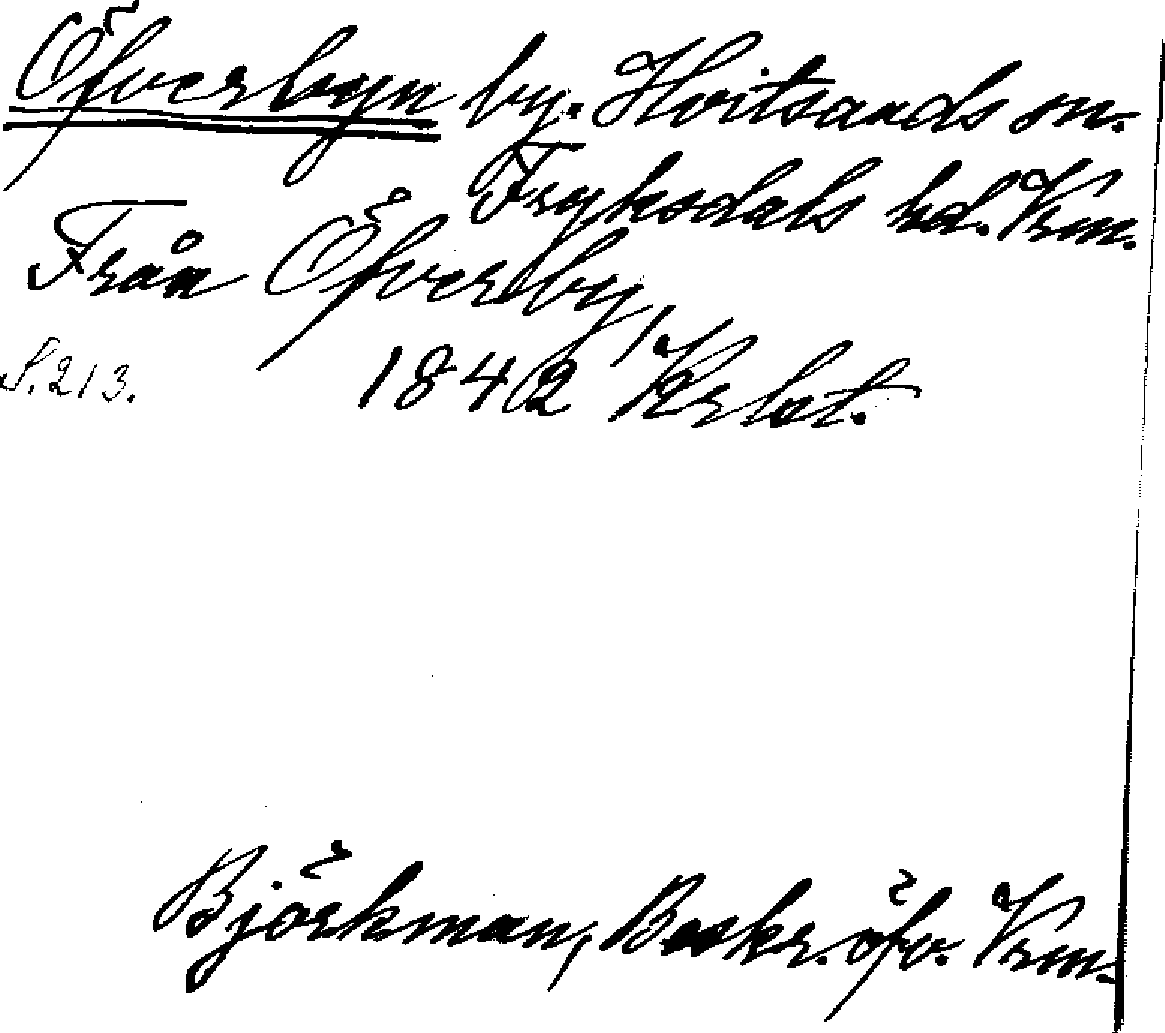 Öfverbyn by. Hvitsands sn.
Fryksdals hd. Vrm.
Från Öfverby,
S. 213. 1842 Krlat.
Björkman, Beskr. öfv. Vrm.